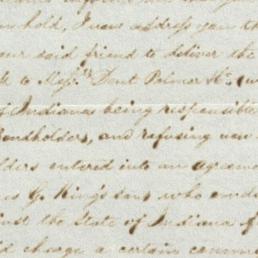 hold, I now address you th
our said friend to deliver the
to Mess.rs Dent Palmer &c.
of Indiana being responsible
Bondholders, and refusing
olders entered into an agreem
G. King's sons who
inst the State of Indiana f
charge a certain comm